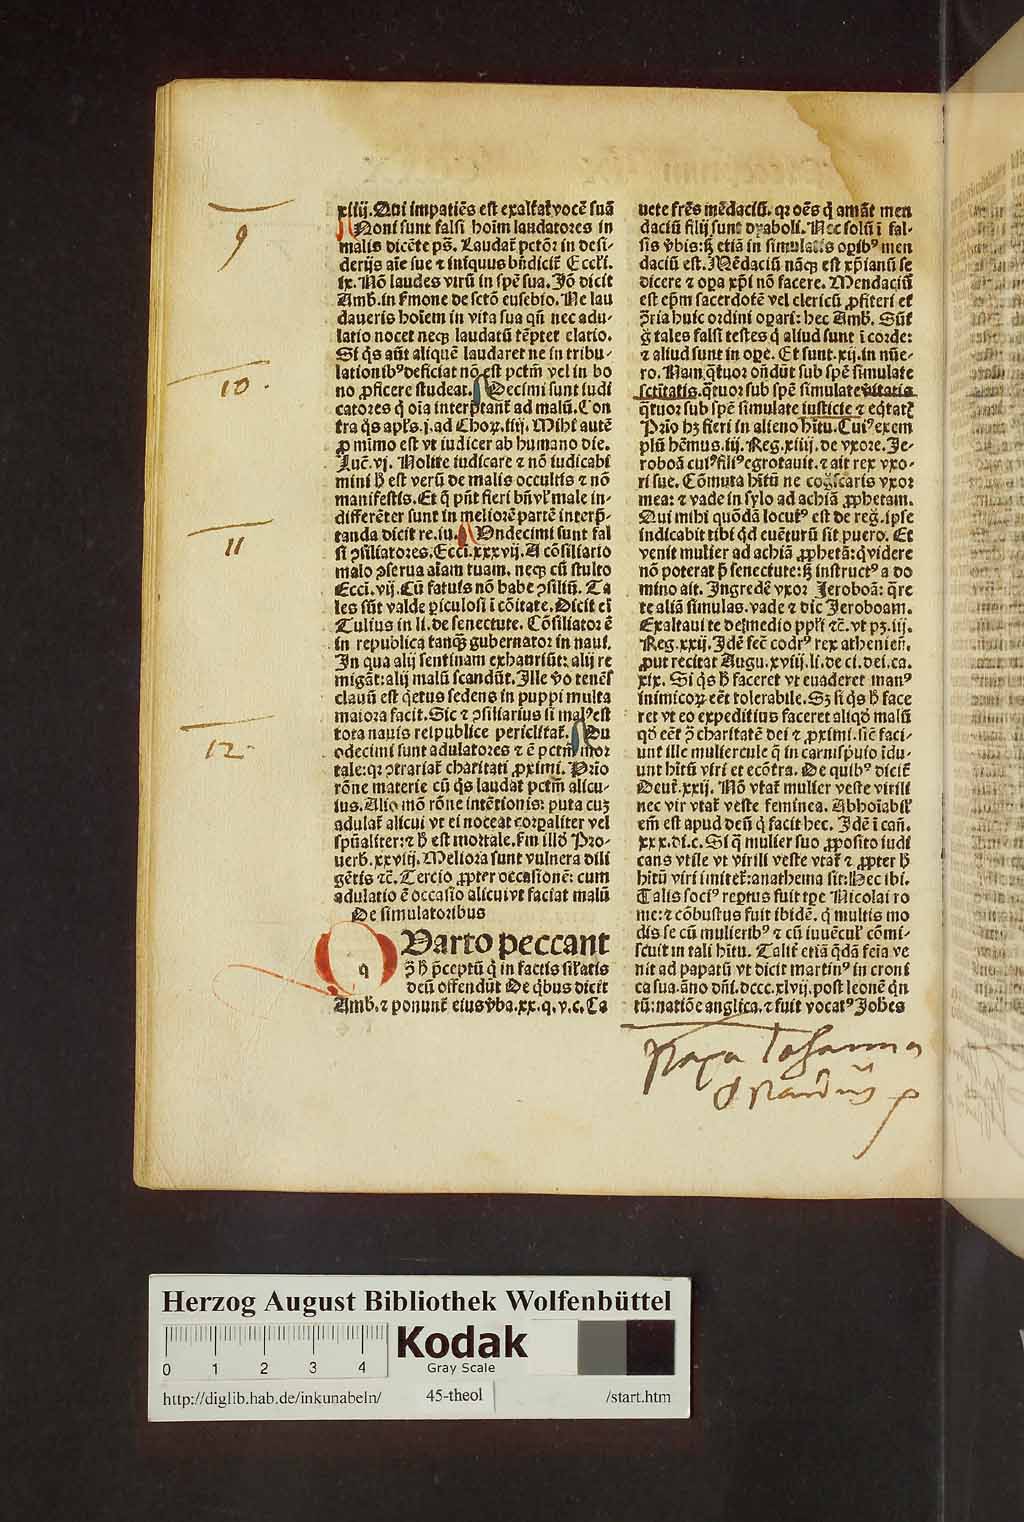 xliij. Qui impatiēs est exaltat̄ vocē suā
Noni sunt falsi hoīm laudatores in
malis dicēte ps̄. Laudat̄ pctōr in desi-
derijs aīe sue ⁊ iniquus bn̄dicit̄ Eccl̄i.
ix. Nō laudes virū in spē sua. Jō dicit
Amb. in ẜmone de sctō eusebio. Ne lau
daueris hoīem in vita sua qn̄ nec adu-
latio nocet neqꝫ laudatū tēptet elatio.
Si q̇s aūt aliquē laudaret ne in tribu-
lationibꝰ deficiat nō est pctm̄ vel in bo
no ꝓficere studeat. Decimi sunt iudi
catores q̇ oīa interp̄tant̄ ad malū. Con
tra q̇s apl̄s. j. ad Choꝝ. iiij. Mihi autē
ꝓ mīmo est vt iudicer ab humano die.
Luc̄. vj. Nolite iudicare ⁊ nō iudicabi
mini ꝧ est verū de malis occultis ⁊ nō
manifestis. Et q̇ pn̄t fieri bn̄ vl̄ male in-
differēter sunt in meliorē partē interp̄-
tanda dicit re. iu. Vndecimi sunt fal
si ↄsiliatores. Ecci. xxxvij. A cōsiliario
malo ↄserua aīam tuam. neqꝫ cū stulto
Ecci. vij. Cū fatuis nō habe ↄsiliū. Ta
les sūt valde ꝑiculosi ī cōitate. Dicit eī
Tulius in li. de senectute. Cōsiliator ē
in republica tanqꝫ gubernator in naui.
In qua alij sentinam exhauriūt: alij re
migāt: alij malū scandūt. Ille v̄o tenēs
clauū est q̇etus sedens in puppi multa
maiora facit. Sic ⁊ ↄsiliarius si malꝰ est
tota nauis reipublice periclitat̄. Du
odecimi sunt adulatores ⁊ ē pctm̄ mor
tale: qꝛ ↄtrariat̄ charitati ꝓximi. Prīo
rōne materie cū q̇s laudat pctm̄ alicu-
ius. Alio mō rōne intētionis: puta cuꝫ
adulat̄ alicui vt ei noceat corꝑaliter vel
spūaliter: ⁊ ꝧ est mortale. ẜm illō Pro-
uerb. xxviij. Meliora sunt vulnera dili
gētis ⁊c̄. Tercio ꝓpter occasionē: cum
adulatio ē occasio alicui vt faciat malū
De simulatoribus
QVarto peccant
q
ꝯ̄ ꝧ p̄ceptū q̇ in factis sil̄atis
deū offendūt De q̇bus dicit
Amb. ⁊ ponunt̄ eius v̄ba. xx. q. v. c. Ca
uete fr̄es mēdaciū. qꝛ oēs q̇ amāt men
daciū filij sunt dyaboli. Nec solū ī fal-
sis v̄bis: sꝫ etiā in simulatis oꝑibꝰ men
daciū est. Mēdaciū nāqꝫ est xp̄ianū se
dicere ⁊ oꝑa xp̄i nō facere. Mendaciū
est ep̄m sacerdotē vel clericū ꝓfiteri et
ꝯ̄ria huic ordini oꝑari: hec Amb. Sūt
g̊ tales falsi testes q̇ aliud sunt ī corde:
⁊ aliud sunt in oꝑe. Et sunt. xij. in nūe-
ro. Nam q̄tuor on̄dūt sub spē simulate
sctītatis. q̄tuor sub spē simulate v̄itatis
q̄tuor sub spē simulate iusticie ⁊ eq̇tat̄
Prīo hꝫ fieri in alieno hītu. Cuiꝰ exem
plū hēmus. iij. Reg. xiiij. de vxore. Je-
roboā cuiꝰ filiꝰ egrotauit. ⁊ ait rex vxo-
ri sue. Cōmuta hītū ne cogͦscaris vxor
mea: ⁊ vade in sylo ad achiā ꝓphetam.
Qui mihi quōdā locutꝰ est de reḡ. ipse
indicabit tibi qd̄ euēturū sit puero. Et
venit mulier ad achiā ꝓphetā: q̇ videre
nō poterat p̄ senectute: sꝫ instructꝰ a do
mino ait. Ingredē vxor Jeroboā: q̄re
te aliā simulas. vade ⁊ dic Jeroboam.
Exaltaui te de medio ppl̄i ⁊c̄. vt pꝫ. iij.
Reg. xxij. Idē fec̄ codrꝰ rex atheniēn̄.
ꝓut recitat Augu. xviij. li. de ci. dei. ca.
xix. Si q̇s ꝧ faceret vt euaderet manꝰ
inimicoꝝ eēt tolerabile. Sꝫ si q̇s ꝧ face
ret vt eo expeditius faceret aliqd̄ malū
qd̄ eēt ꝯ̄ charitatē dei ⁊ ꝓximi. sic̄ faci-
unt ille muliercule q̄ in carnispuio īdu-
unt hītū viri et ecōtra. De quibꝰ dicit̄
Deut̄. xxij. Nō vtat̄ mulier veste virili
nec vir vtat̄ veste feminea. Abhoīabil̄
em̄ est apud deū q̇ facit hec. Idē ī cañ.
xxx. di. c. Si q̄ mulier suo ꝓposito iudi
cans vtile vt virili veste vtat̄ ⁊ ꝓpter ꝧ
hītū viri imitet̄: anathema sit: Hec ibi.
Talis sociꝰ reptus fuit tꝑe Nicolai ro
me: ⁊ cōbustus fuit ibidē. q̇ multis mo
dis se cū mulieribꝰ ⁊ cū iuuēcul̄ cōmi-
scuit in tali hītu. Talit̄ etiā q̄dā feīa ve
nit ad papatū vt dicit martinꝰ in croni
ca sua. āno dn̄i. dccc. xlvij. post leonē q̇n
tū: natiōe anglica. ⁊ fuit vocatꝰ Johēs
9
10.
11
12.
Papa Johanna
Herzog August Bibliothek Wolfenbüttel
0 1 2 3 4
Kodak
Gray Scale
http://diglib.hab.de/inkunabeln/ 45-theol /start.htm